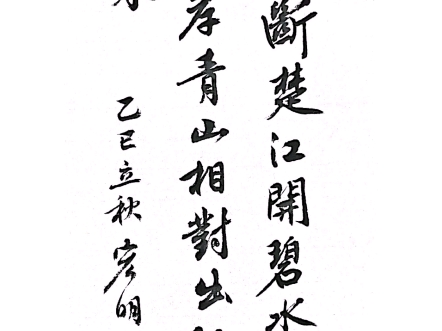 斷楚江開碧水
岸青山相對出
乙巳立秋彥明